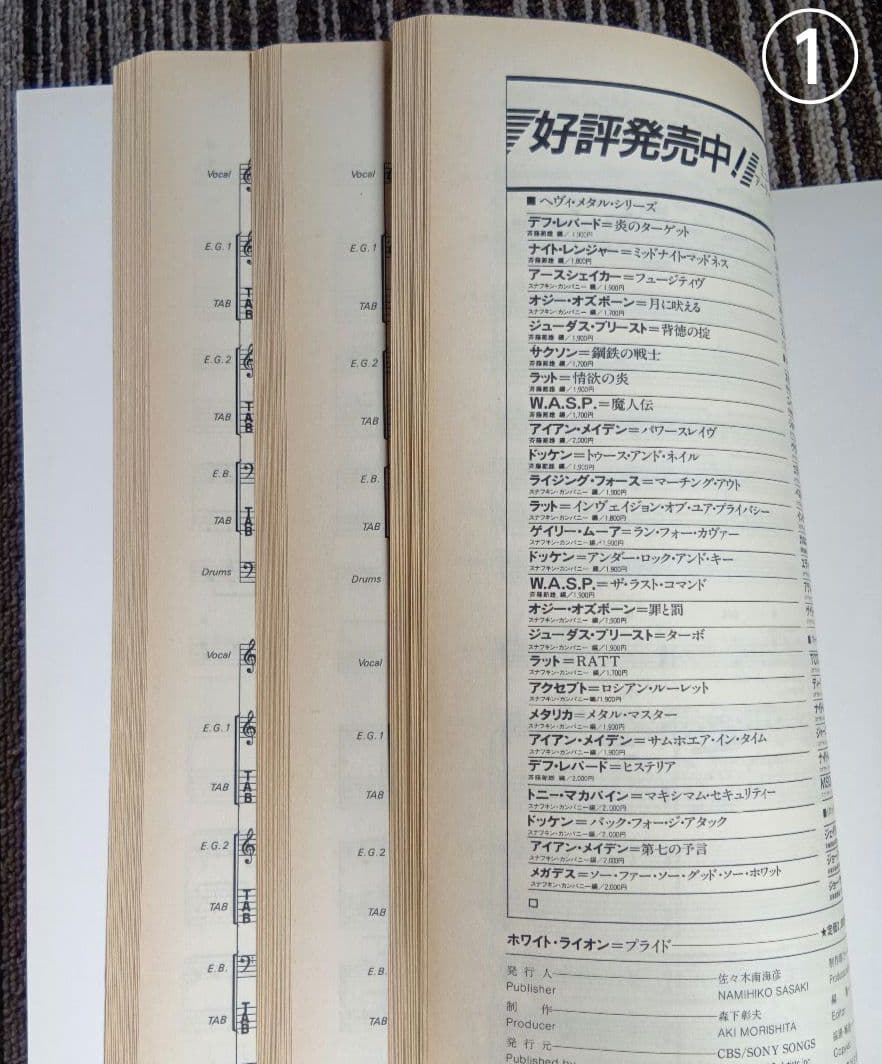 ①
Vocal
E.G.1
TAB
E.G.2
TAB
E.B.
TAB
Drums
Vocal
E.G.1
TAB
E.G.2
TAB
E.B.
TAB
Vocal
E.G.1
TAB
E.G.2
TAB
E.B.
TAB
Drums
Vocal
E.G.1
TAB
E.G.2
TAB
E.B.
TAB
好評発売中!
■ ヘヴィ・メタル・シリーズ
デフ・レパード=炎のターゲット
斉藤新雄 編/1,900円
ナイト・レンジャー=ミッドナイト・マッドネス
斉藤新雄 編/1,800円
アースシェイカー=フュージティヴ
スナフキン・カンパニー 編/1,900円
オジー・オズボーン=月に吠える
スナフキン・カンパニー 編/1,700円
ジューダス・プリースト=背徳の掟
1,900円
サクソン=鋼鉄の戦士
1,700円
ラット=情欲の炎
1,900円
W.A.S.P.=魔人伝
1,700円
アイアン・メイデン=パワースレイヴ
2,000円
ドッケン=トゥース・アンド・ネイル
1,900円
ライジング・フォース=マーチング・アウト
スナフキン・カンパニー 編/1,900円
ラット=インヴェイジョン・オブ・ユア・プライバシー
スナフキン・カンパニー 編/1,800円
ゲイリー・ムーア=ラン・フォー・カヴァー
スナフキン・カンパニー 編/1,900円
ドッケン=アンダー・ロック・アンド・キー
スナフキン・カンパニー 編/1,900円
W.A.S.P.=ザ・ラスト・コマンド
1,900円
オジー・オズボーン=罪と罰
スナフキン・カンパニー 編/1,900円
ジューダス・プリースト=ターボ
スナフキン・カンパニー 編/1,900円
ラット=RATT
スナフキン・カンパニー 編/1,700円
アクセプト=ロシアン・ルーレット
スナフキン・カンパニー 編/1,900円
メタリカ=メタル・マスター
スナフキン・カンパニー 編/1,900円
アイアン・メイデン=サムホエア・イン・タイム
スナフキン・カンパニー 編/1,900円
デフ・レパード=ヒステリア
2,000円
トニー・マカパイン=マキシマム・セキュリティー
スナフキン・カンパニー 編/2,000円
ドッケン=バック・フォー・ジ・アタック
スナフキン・カンパニー 編/2,000円
アイアン・メイデン=第七の予言
スナフキン・カンパニー 編/2,000円
メガデス=ソー・ファー・ソー・グッド・ソー・ホワット
スナフキン・カンパニー 編/2,000円
ホワイト・ライオン=プライド ★定価
発行人 佐々木南海彦
Publisher NAMIHIKO SASAKI
制作 森下彰夫
Producer AKI MORISHITA
発行元 CBS/SONY SONGS
Published by
Editor